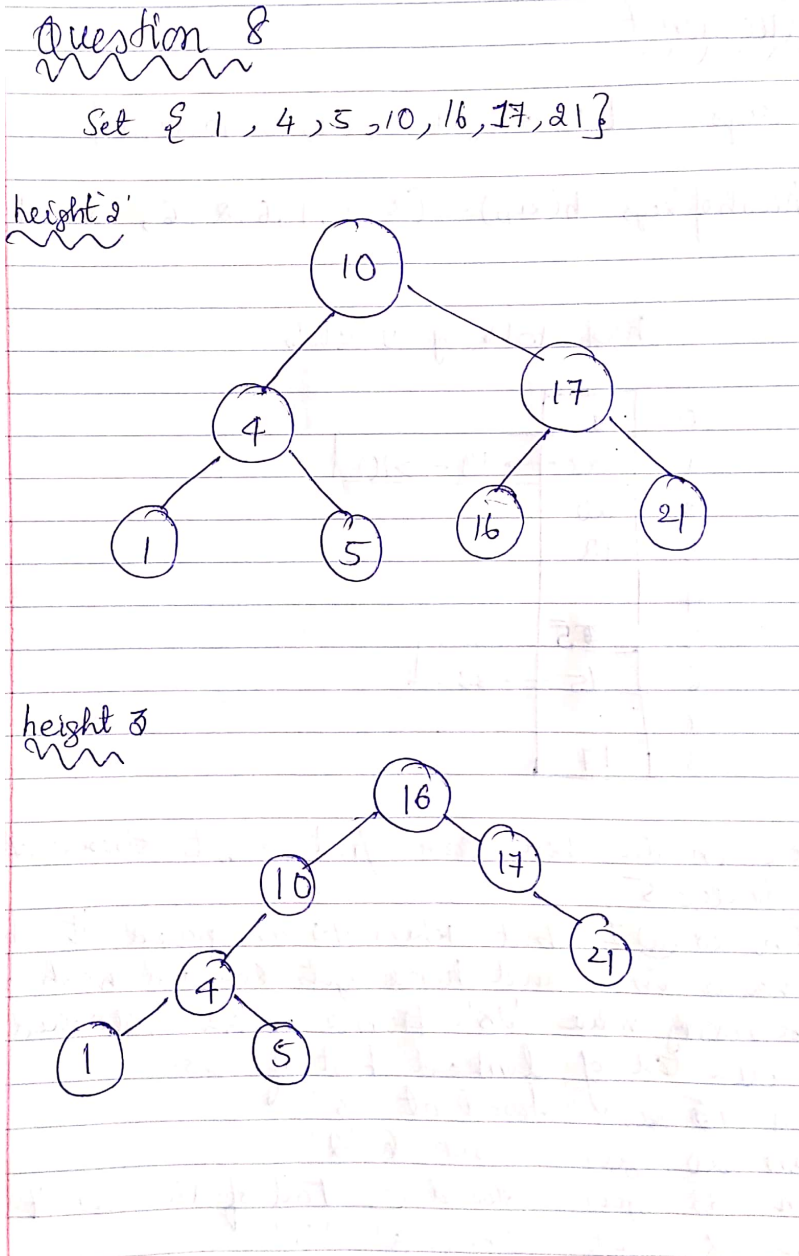 Question 8
Set { 1, 4, 5, 10, 16, 17, 21}
height 2
10
4
17
1
5
16
21
height 3
16
10
17
4
21
1
5